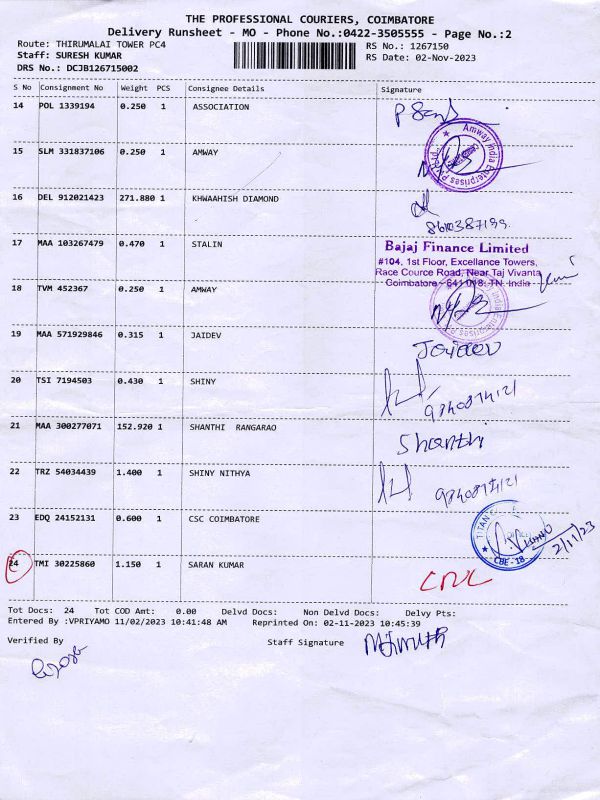 THE PROFESSIONAL COURIERS, COIMBATORE
Delivery Runsheet - MO - Phone No.:0422-3505555 - Page No.:2
Route: THIRUMALAI TOWER PC4
RS No.: 1267150
Staff: SURESH KUMAR
RS Date: 02-Nov-2023
DRS No.: DCJB126715002
S No Consignment No Weight PCS Consignee Details Signature
14 POL 1339194 0.250 1 ASSOCIATION
15 SLM 331837106 0.250 1 AMWAY
Amway India Enterprises
16 DEL 912021423 271.880 1 KHWAAHISH DIAMOND
8610387199
17 MAA 103267479 0.470 1 STALIN
Bajaj Finance Limited
#104, 1st Floor, Excellance Towers,
Race Cource Road, Near Taj Vivanta,
Coimbatore - 641 018. TN. India
18 TVM 452367 0.250 1 AMWAY
19 MAA 571929846 0.315 1 JAIDEV
Jaidev
20 TSI 7194503 0.430 1 SHINY
21 MAA 300277071 152.920 1 SHANTHI RANGARAO
Shanthi
22 TRZ 54034439 1.400 1 SHINY NITHYA
23 EDQ 24152131 0.600 1 CSC COIMBATORE
TITAN
CBE - 18
2/11/23
24 TMI 30225860 1.150 1 SARAN KUMAR
Tot Docs: 24 Tot COD Amt: 0.00 Delvd Docs: Non Delvd Docs: Delvy Pts:
Entered By :VPRIYAMO 11/02/2023 10:41:48 AM Reprinted On: 02-11-2023 10:45:39
Verified By
Staff Signature